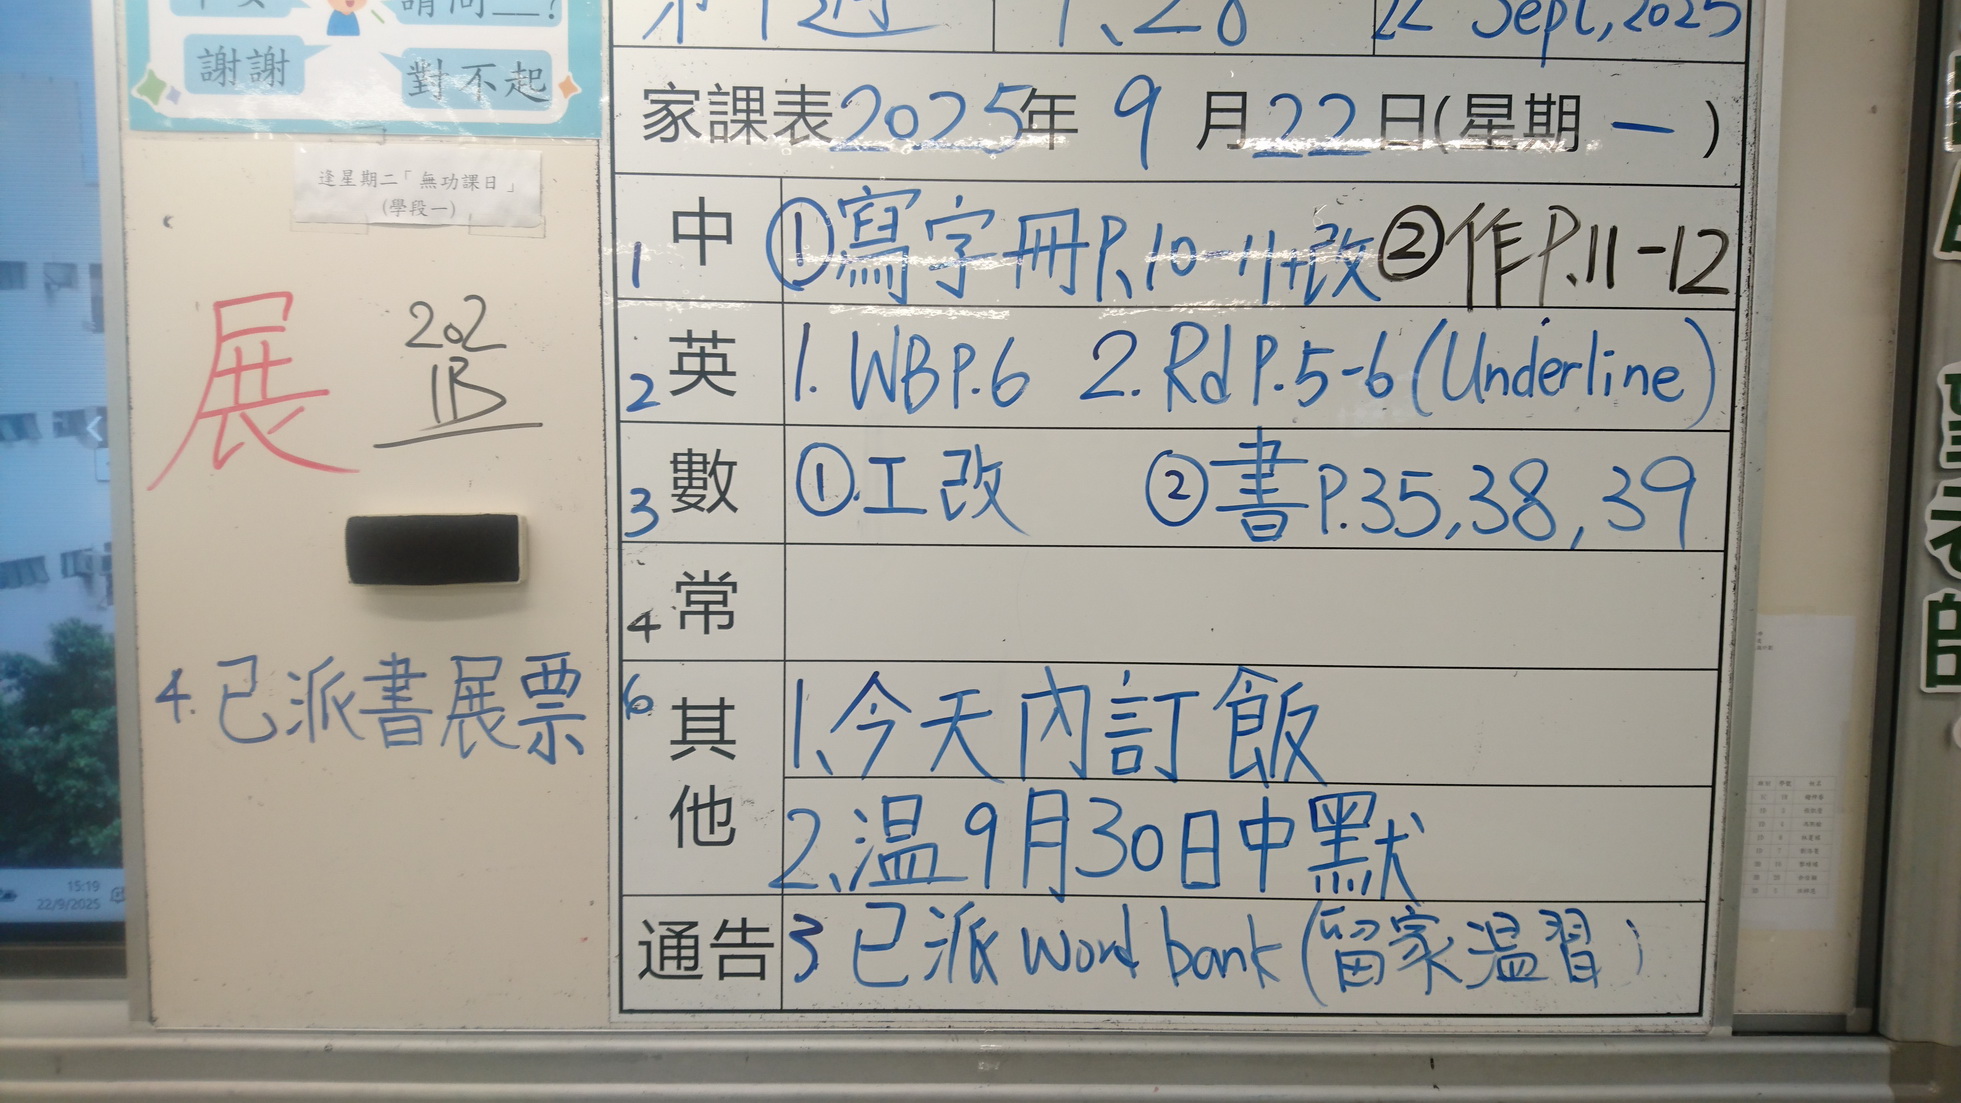 請問__?
謝謝
對不起
Sept, 2025
家課表2025年 9 月22日(星期一)
逢星期二「無功課日」
(學段一)
1 中 ①寫字冊P.10-11+改 ②作P.11-12
2 英 1. WB P.6 2. Rd P.5-6 (Underline)
3 數 ①工改 ②書P.35,38,39
4 常
6 其他 1、今天內訂飯
2、温9月30日中默
通告 3 已派 word bank (留家温習)
展
202
1B
4. 已派書展票
15:19
22/9/2025